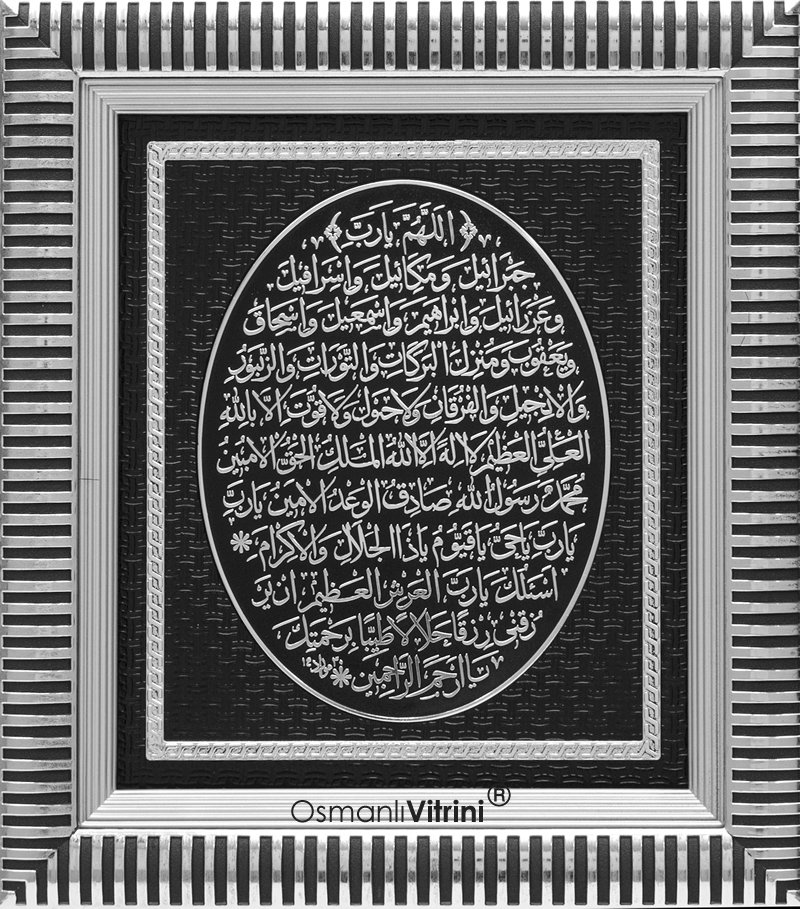 ﴿ اَللّٰهُمَّ يَارَبَّ ﴾
جَبْرَائِيلَ وَمِكَائِيلَ وَاِسْرَافِيلَ
وَعَزْرَائِيلَ وَاِبْرَاهِيمَ وَاِسْمٰعِيلَ وَاِسْحَاقَ
وَيَعْقُوبَ وَمُنْزِلَ الْبَرَكَاتِ وَالتَّوْرَاتِ وَالزَّبُورِ
وَالْاِنْجِيلِ وَالْفُرْقَانِ وَلَاحَوْلَ وَلَاقُوَّتَ اِلَّا بِاللّٰهِ
الْعَلِيِّ الْعَظِيمِ لَااِلٰهَ اِلَّااللّٰهُ الْمَلِكُ الْحَقُّ الْمُبِينُ
مُحَمَّدٌ رَسُولُ اللّٰهِ صَادِقُ الْوَعْدِ الْاَمِينُ يَارَبَّ
يَارَبَّ يَاحَيُّ يَاقَيُّومُ يَاذَاالْجَلَالِ وَالْاِكْرَامِ *
اَسْئَلُكَ يَارَبَّ الْعَرْشِ الْعَظِيمِ اَنْ يَرْ
زُقَنِى رِزْقًا حَلَالًا طَيِّبًا بِرَحْمَتِكَ
يَااَرْحَمَ الرَّاحِمِينَ *
OsmanlıVitrini®